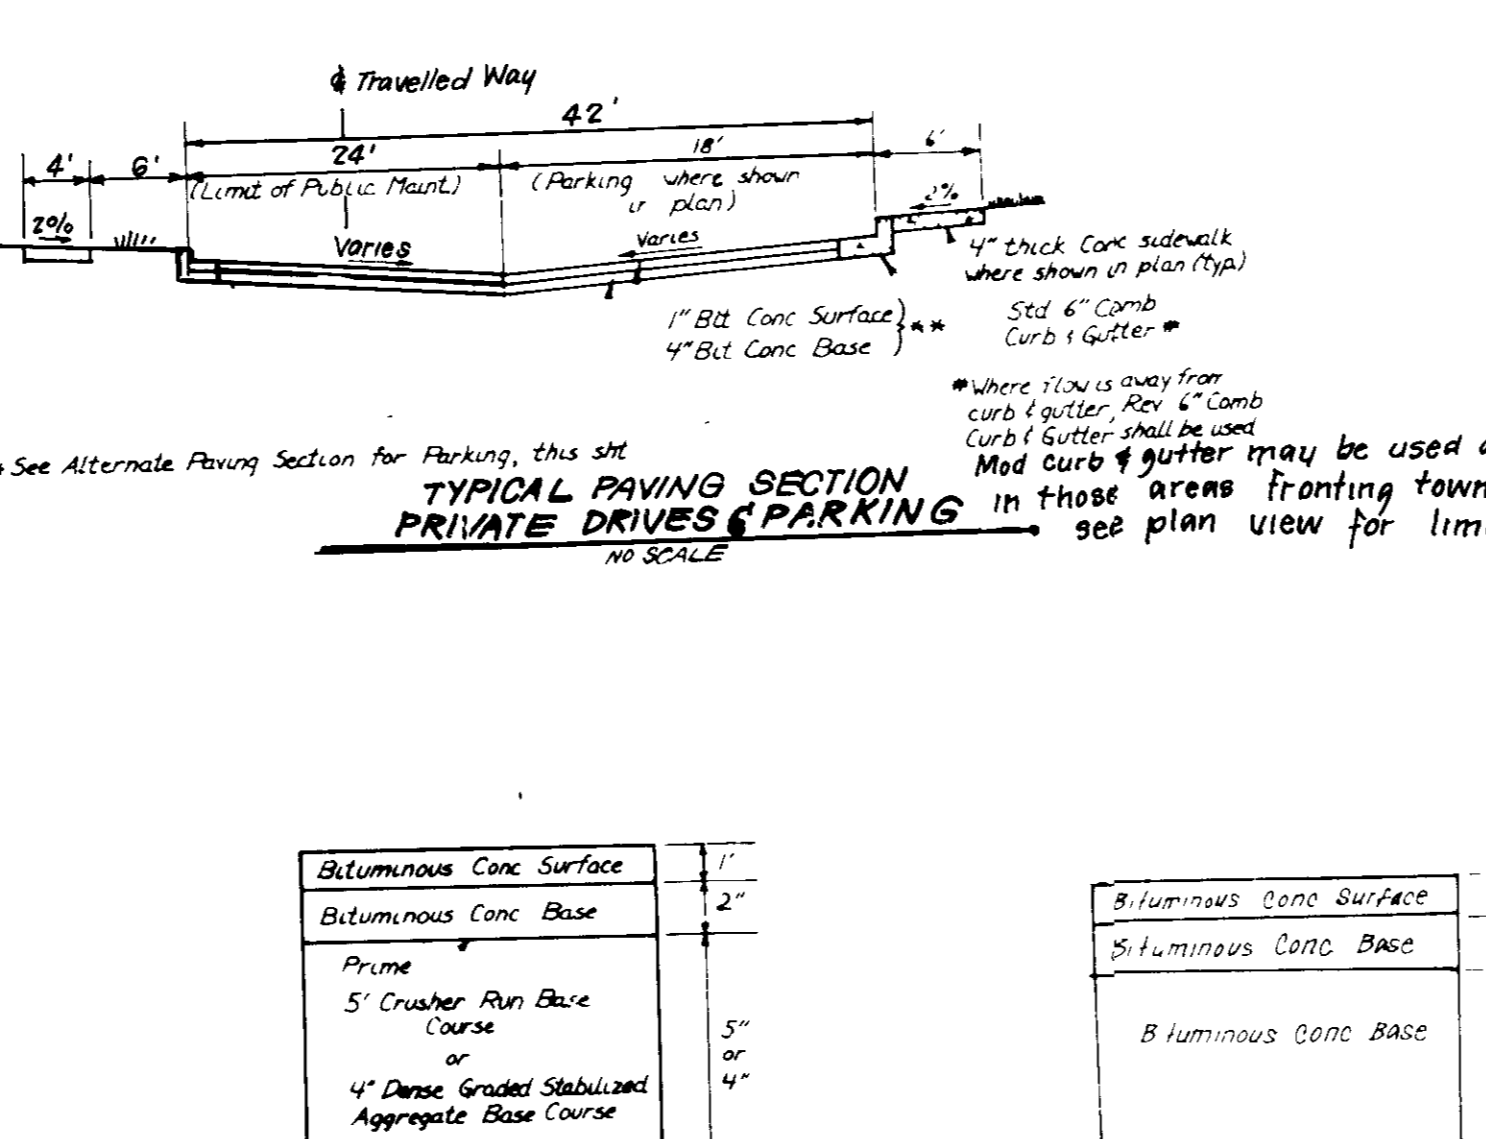 ℄ Travelled Way
42'
4' 6' 24' 18' 6'
(Limit of Public Maint.)
(Parking where shown
in plan)
2%
Varies
Varies
2%
4" thick Conc sidewalk
where shown in plan (typ.)
1" Bit Conc Surface
4" Bit Conc Base
} **
Std 6" Comb
Curb & Gutter *
* Where flow is away from
curb & gutter, Rev 6" Comb
Curb & Gutter shall be used
Mod curb & gutter may be used
in those areas fronting town
see plan view for lim
See Alternate Paving Section for Parking, this sht
TYPICAL PAVING SECTION
PRIVATE DRIVES & PARKING
NO SCALE
Bituminous Conc Surface
1"
Bituminous Conc Base
2"
Prime
5" Crusher Run Base
Course
or
4" Dense Graded Stabilized
Aggregate Base Course
5"
or
4"
Bituminous Conc Surface
Bituminous Conc Base
Bituminous Conc Base